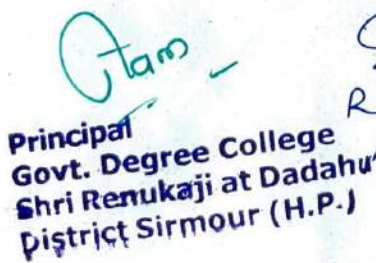 R
Principal
Govt. Degree College
Shri Renukaji at Dadahu
District Sirmour (H.P.)